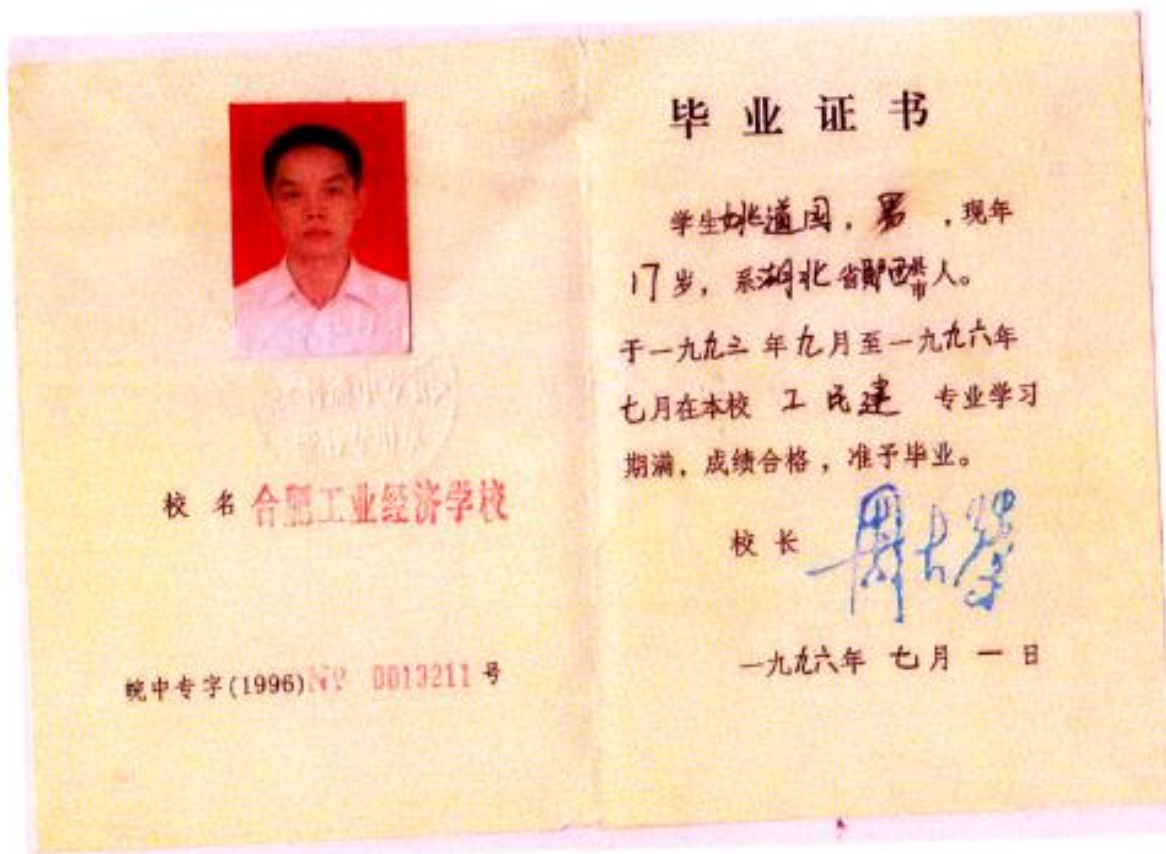 校 名 合肥工业经济学校
皖中专字(1996)Nº 0013211 号
毕 业 证 书
学生姚道国，男，现年
17岁，系湖北省郧西县市人。
于一九九三年九月至一九九六年
七月在本校 工民建 专业学习
期满，成绩合格，准予毕业。
校 长
一九九六年 七月 一日